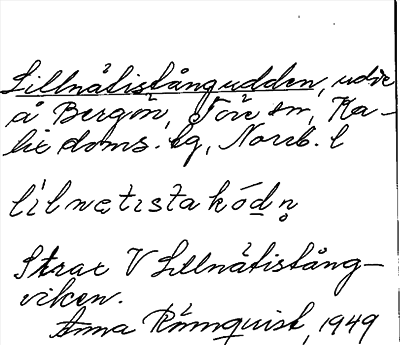 Lillnätistångudden, udde
å Bergön, Töre sn, Ka-
lix doms. lg, Norrb. l
lilnætistakódn̥
Strax V Lillnätistång-
viken.
Anna Rönnquist, 1949